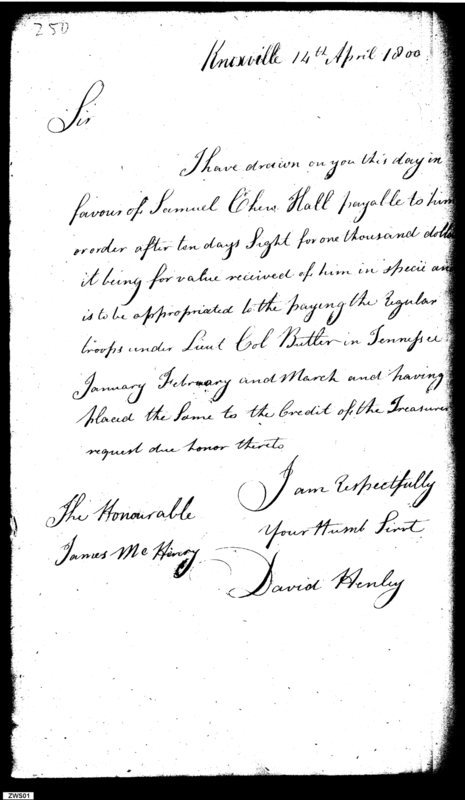 250
Knoxville 14th April 1800
Sir
I have drawn on you this day in
favour of Samuel Chew Hall payable to him
or order after ten days Sight for one thousand dolla
it being for value received of him in specie an
is to be appropriated to the paying the Regular
troops under Lieut Col Butler in Tennessee
January February and March and having
placed the Same to the Credit of the Treasurer
request due honor thereto
I am Respectfully
Your Humb Servt
The Honourable
James McHenry
David Henley
ZWS01